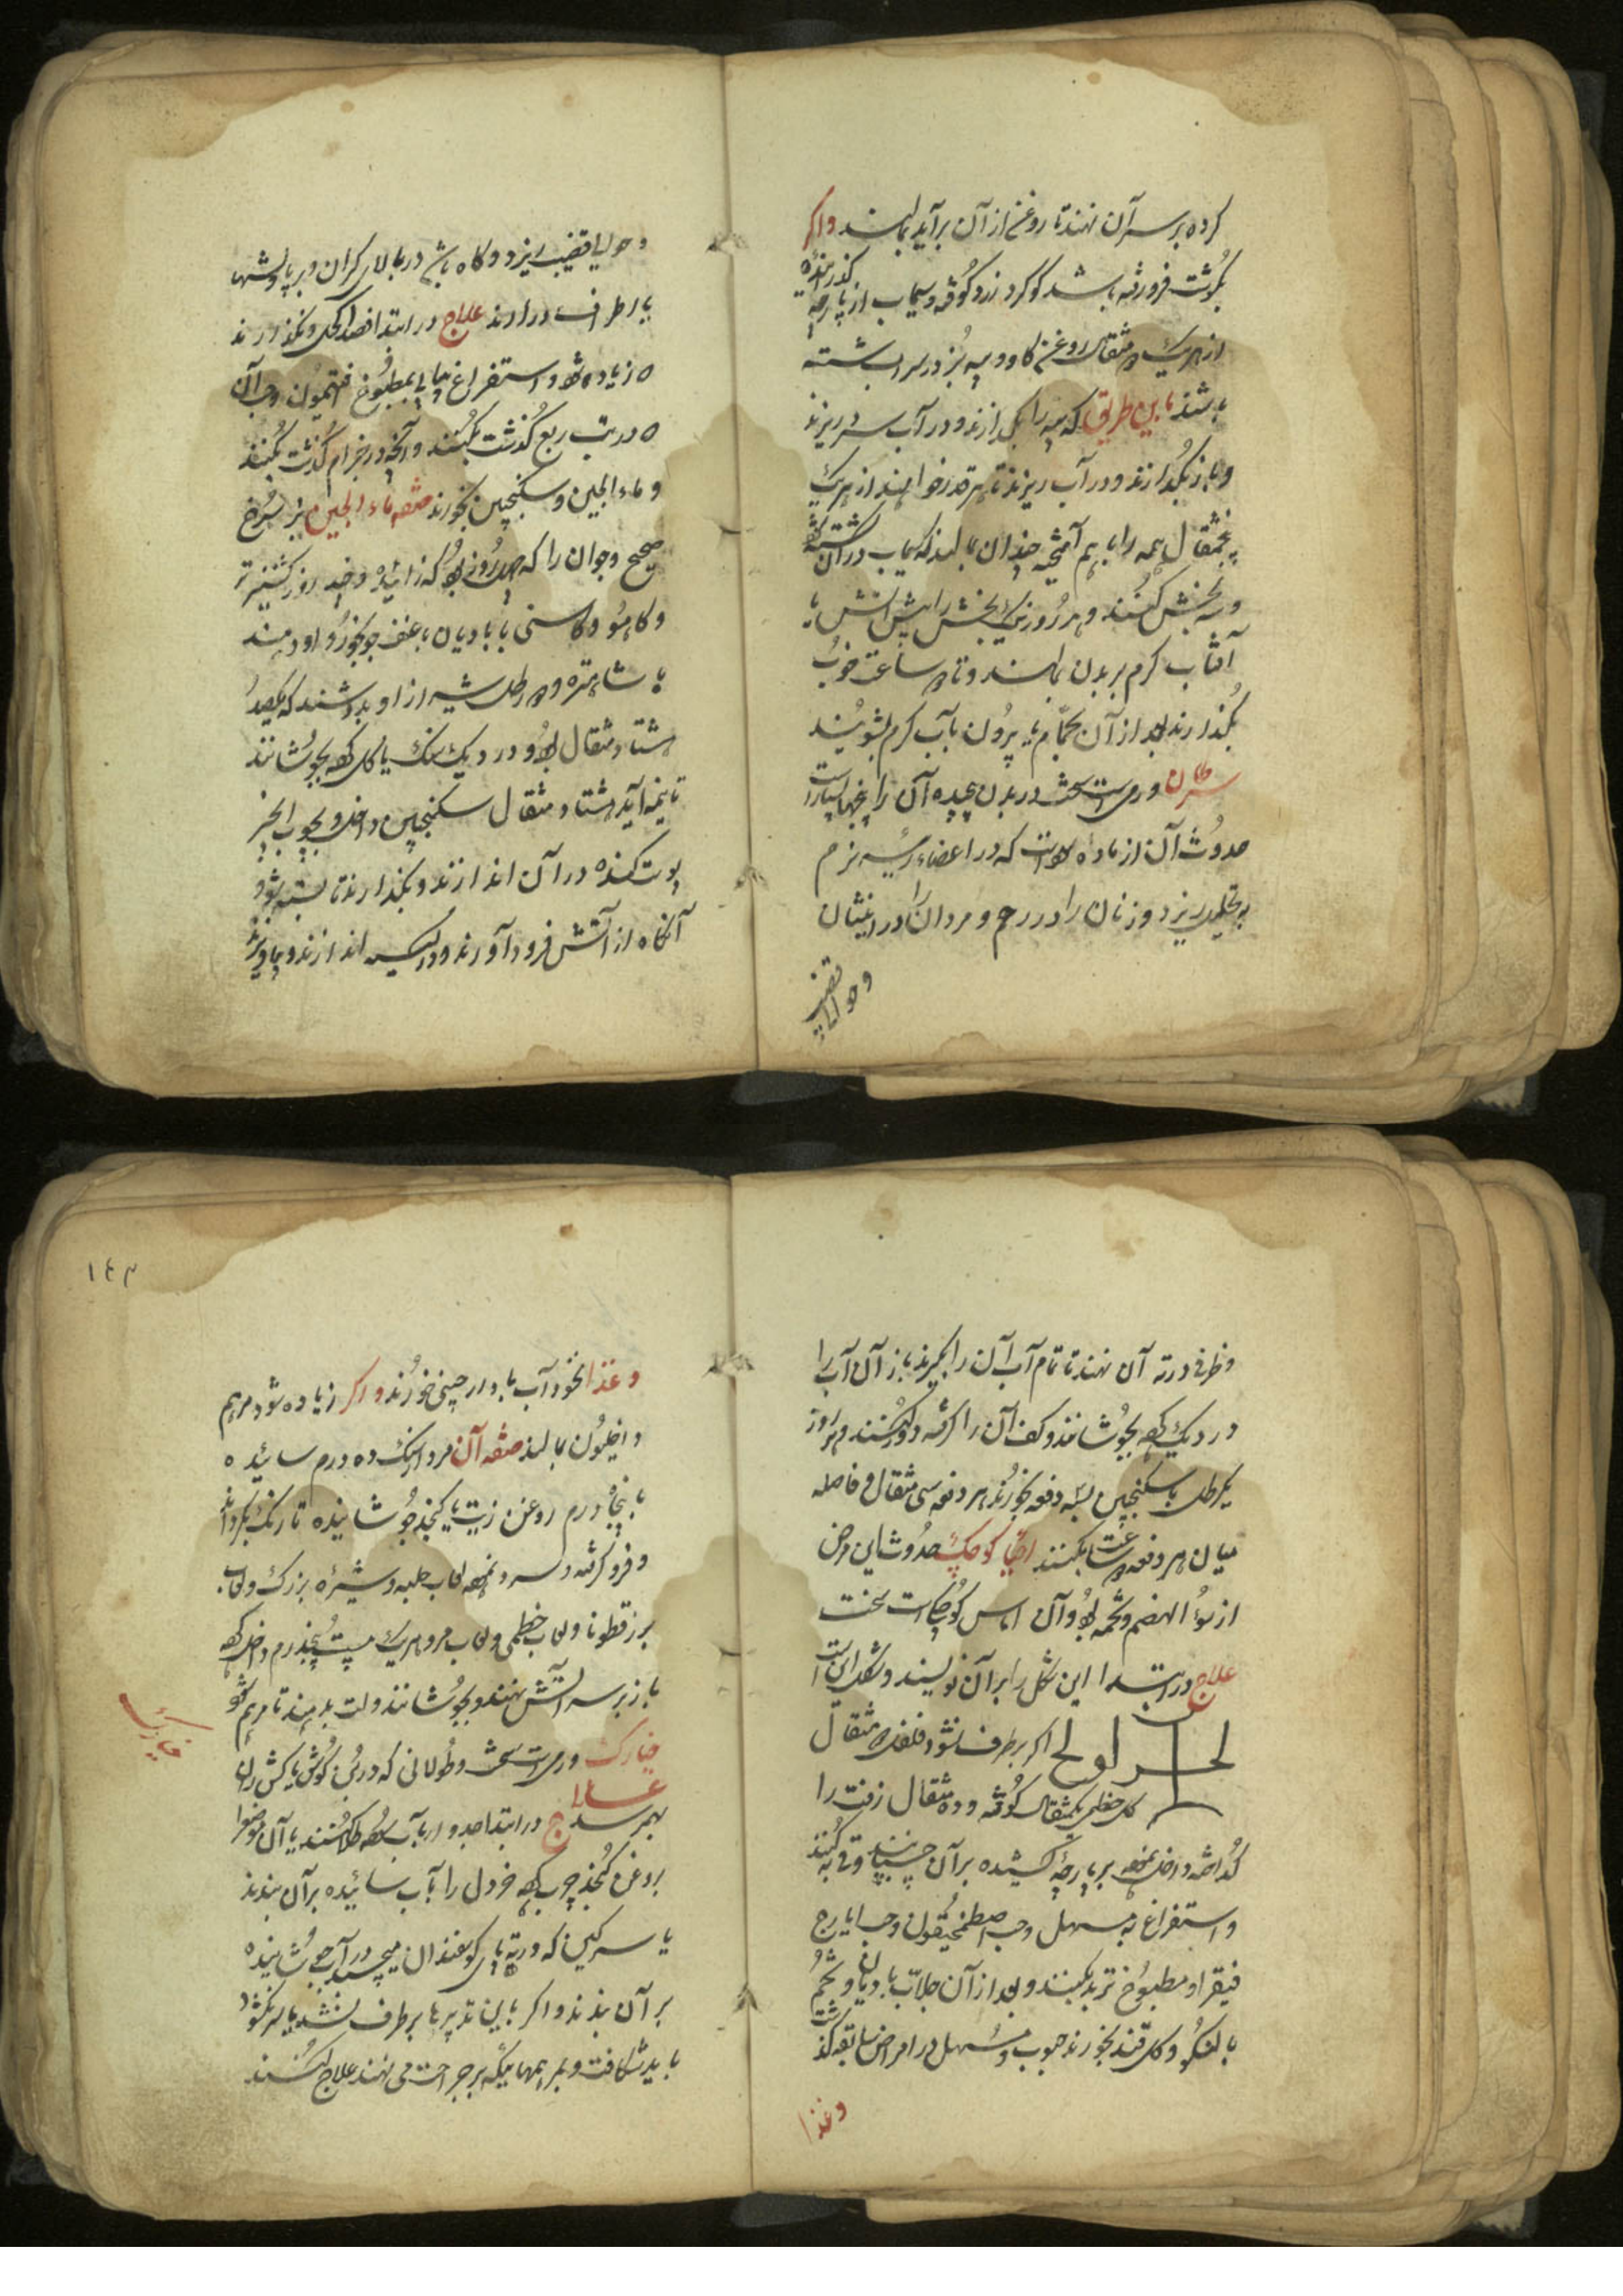 کرده بر سر آن نهند تا روغن از آن برآید بمالند واکر
بکوشت فرو رفته باشد کوکرد زرد کوفته و سیماب از پارچه کذرانیده
از هریک مثقال روغن کاو و پیه بز در سر آب شسته
باشند باین طریق که پیه را بکدازند و در آب سرد ریزند
و باز بکدازند و در آب ریزند تا هر قدر خواهند از هریک
پنجمثقال همه را با هم آمیخته چندان بمالند که سیماب در آن کشته شود
و سه بخش کنند و هر روز یک بخش را پیش آتش یا
آفتاب کرم بر بدن بمالند و تا ساعت خوب
بکذارند بعد از آن بحمام یا بیرون بآب کرم بشویند
سرطان ورمی است سخت در بدن چیده آن را بیخها بسیار است
حدوث آن از ماده سوداست که در اعضاء رئیسه نرم
بتحلیل ریزد و زنان را در رحم و مردان را در انثیان
و حوالی قضیب
و حوالی قضیب ریزد و کاه باشد در بالای کران و بر پا و پشتها
یا اطراف درارند علاج در ابتدا فصد اکحل و نکذارند
که زیاده شود و استفراغ پیاپی بمطبوخ افتیمون و حب آن
که در تب ربع کذشت بکنند و آنچه در جذام کذشت بکنند
و ماء الجبن و سکنجبین بخورند صفه ماء الجبن بز سرخ
صحیح و جوان را که چهل روز بود که زائیده و چند روز کشنیز تر
و کاهو و کاسنی با بادیان با علف جو بخورد او دهند
یا شاهتره و رطل شیر از او بدوشند که یکصد
هشتاد مثقال بود و در دیک سنک یا کلی کرده بجوشانند
تا نیمه آید هشتاد مثقال سکنجبین داخل و بچوب انجیر
پوست کنده در آن اندازند و بکذارند تا بسته شود
آنکاه از آتش فرود آورند و در کیسه اندازند و بیاویزند
و ظرفی در ته آن نهند تا تمام آب آن را بکیرند باز آن آب را
در دیک کرده بجوشانند و کف آن را کرفته دور کنند و هر روز
یکرطل با سکنجبین بسه دفعه بخورند هر دفعه سی مثقال و فاصله
میان هر دفعه ساعت بکنند کوچک حدوث این مرض
از سوء الهضم و تخمه بود و آن اماس کوچک است سخت
علاج در ابتدا این شکل را بر آن نویسند و شکل این است
اکر بر طرف نشود فلفل مثقال
کل خطمی یکمثقال کوفته و ده مثقال زفت را
کداخته داخل نموده بر پارچه کشیده بر آن چسبانند و قی کنند
و استفراغ به مسهل و حب اصطمخیقون و حب ایارج
فیقرا و مطبوخ تربد بکنند و بعد از آن جلاب با بادیان و تخم
بالنکو و کل قند بخورند حبوب و مسهل در امراض سابقه کذشت
و غذا
١٤٣
و غذا نخود آب با دارچینی خورند و اکر زیاده شود مرهم
داخلیون بمالند صفه آن مرداسنک ده درم سائیده
با پنجاه درم روغن زیت یا کنجد جوشانیده تا رنک بکرداند
و فرو کرفته و سرد نموده لعاب حلبه و شیره بزرک و لعاب
برزقطونا و لعاب خطمی و لعاب مرو هریک بیست پنجدرم داخل کرده
باز بر سر آتش نهند و بجوشانند و لت بدهند تا مرهم شود
خیارک ورمی است سخت و طولانی که در بن کوش یا کش ران
خیارک
بهم رسد علاج در ابتدا جدوار بآب سوده طلا کنند یا آن موضع را
بروغن کنجد چرب کرده خردل را بآب سائیده بر آن بندند
یا سرکین که در ته پای کوسفندان میچسبد در آب جوشانیده
بر آن بندند و اکر باین تدبیرها بر طرف نشد یا سر نکشود
باید شکافت و بمرهمهائیکه بر جراحت می نهند علاج کنند